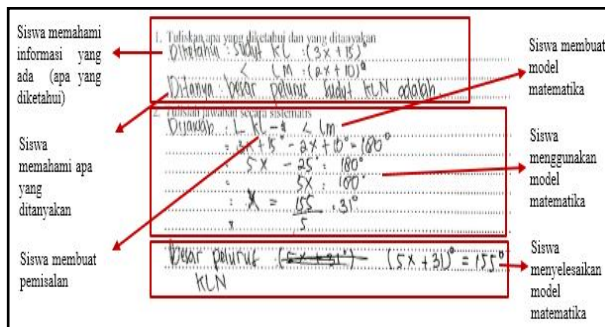 Siswa memahami
informasi yang
ada (apa yang
diketahui)
Siswa
memahami apa
yang
ditanyakan
Siswa membuat
pemisalan
1. Tuliskan apa yang diketahui dan yang ditanyakan
Diketahui : Sudut KL : (3x + 15)°
< LM : (2x + 10)°
Ditanya : besar pelurus sudut KLN adalah
2. Tuliskan jawaban secara sistematis
Dijawab : L KL - < Lm
= 3x + 15° - 2x + 10 = 180°
= 5x - 25 : 180°
= 5x : 180°
: x = 155 : 31°
5
Besar pelurus (5x + 31)° = 155°
KLN
Siswa membuat
model
matematika
Siswa
menggunakan
model
matematika
Siswa
menyelesaikan
model
matematika